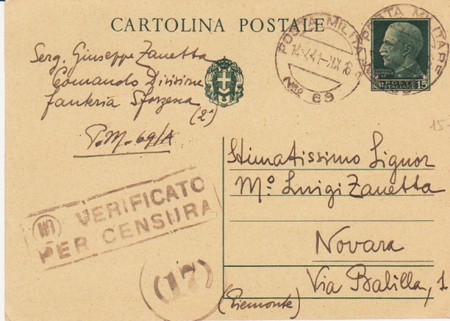 CARTOLINA POSTALE
Serg. Giuseppe Zanetta
Comando Divisione
fanteria Sforzesca
(2ª)
P.M. 69/A
POSTA MILITARE
Nº 69
POSTA MILITARE
15
15-
VERIFICATO
PER CENSURA
(17)
Stimatissimo Signor
Mº Luigi Zanetta
Novara
Via Balilla, 1
(Piemonte)